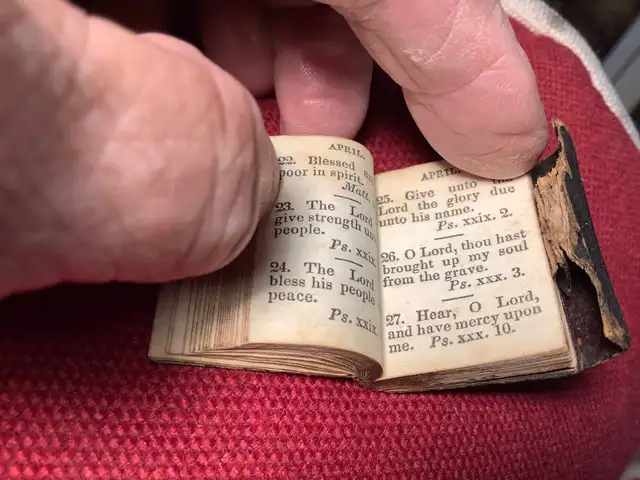 APRIL
22. Blessed
poor in spirit.
Matt.
23. The Lord
give strength
people.
Ps. xxix
24. The Lord
bless his people
peace.
Ps. xxix
APRIL
25. Give unto the
Lord the glory due
unto his name.
Ps. xxix. 2.
26. O Lord, thou hast
brought up my soul
from the grave.
Ps. xxx. 3.
27. Hear, O Lord,
and have mercy upon
me. Ps. xxx. 10.